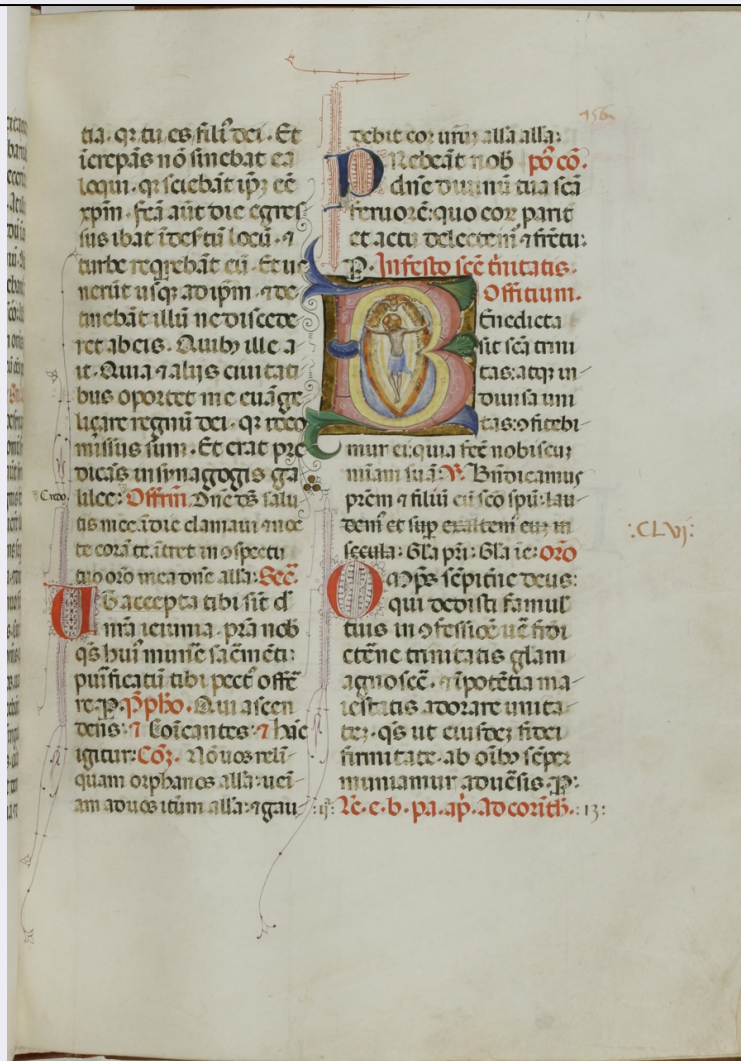 156
tia. qr tu es fili' dei. Et
īcrepās nō sinebat ea
loqui. qr sciebāt ip̄ȝ eē
xp̄m. fcā aūt die egres
sus ibat ī desertū locū. ⁊
turbe reqrebāt eū. Et ue
nerūt usqȝ ad ip̄m. ⁊ de
tinebāt illū ne discede
ret ab eis. Quibȝ ille a-
it. Quia ⁊ alijs ciuitati
bus oportet me euāge
liçare regnū dei. qr ideo
missus sum. Et erat pre
dicās in synagogis ga
lilee: Offm̄. Dn̄e ds̄ salu
Credo.
tis mee. ī die clamaui ⁊ noc
te corā te. ītret in ↄspectu
tuo oro mea dn̄e all'a. Sec̄.
Ut accepta tibi sīt d'
n̄ra ieiunia. p̄ra nob̄
qs̄ hui' munīe sac̄mēti:
purificatū tibi pect' offē
re. P. P̄pho. Qui ascen
dens. ⁊ Coīcantes. ⁊ hāc
igitur. Cōȝ. Nō uos relī-
quam orphanos all'a: ueī-
am ad uos itūm all'a: ⁊ gau-
debit cor ur̄m all'a all'a:
Prebeāt nob̄ pō cō.
dn̄e diuinū tua sc̄a
feruorē: quo eor̄ parit̄
et actu delectem̄ ⁊ frc̄tu:
P. In festo scē t̄nitatis.
Offitium.
Benedicta
sit sc̄a trini
tas: atqȝ in-
diuisa uni
tas: ↄfitebi-
mur ei: quia fec̄ nobiscuȝ
m̄iam suā. V. Bn̄dicamus
prēm ⁊ filiū cū sc̄o spū: lau-
dem' et sup̄ exaltem' euȝ in
secula: Gl̄a pr̄i: Gl̄a ī e: Oro
:CLVj:
Omp̄s sēpit̄ne deus:
qui dedisti famul'
tuis in ↄfessiōe uē fidi
et̄ne trinitatis gl̄am
agnoscē. ⁊ ī potētia ma-
iestatis adorare unita-
teȝ. qs̄ ut eiusdeȝ fidei
firmitate. ab oībȝ sēper
muniamur aduēsis. P.
:ij: Lc̄. e. b. pa. ap̄. Ad corīth̄. :13: